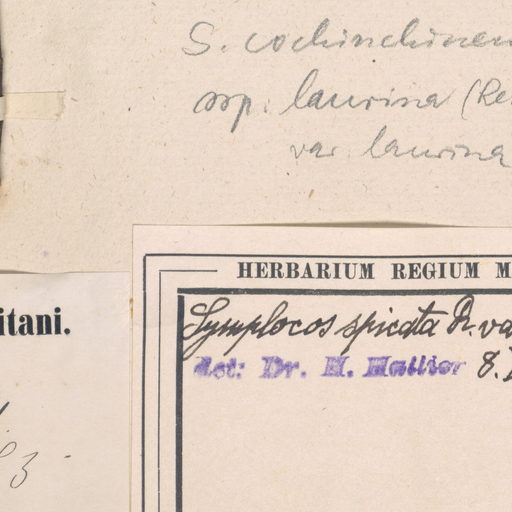 S. cochinchinen
ssp. laurina (Re
var. laurina
HERBARIUM REGIUM M
itani.
Symplocos spicata R. va
det: Dr. H. Hallier 8.
3